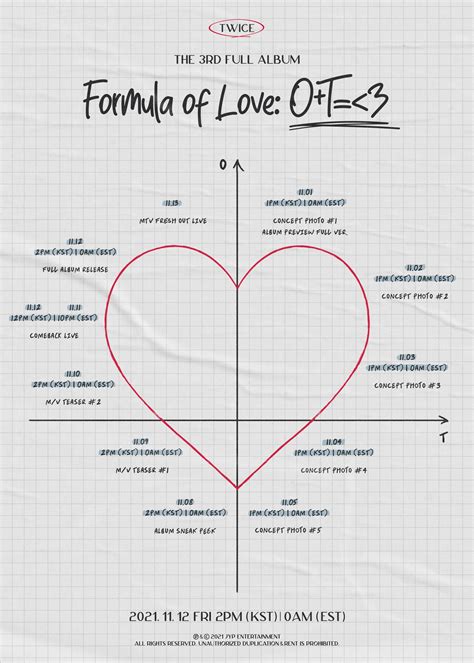 TWICE
THE 3RD FULL ALBUM
Formula of Love: O+T=<3
O
11.01
1PM (KST) | 0AM (EST)
CONCEPT PHOTO #1
ALBUM PREVIEW FULL VER.
11.02
1PM (KST) | 0AM (EST)
CONCEPT PHOTO #2
11.03
1PM (KST) | 0AM (EST)
CONCEPT PHOTO #3
T
11.04
1PM (KST) | 0AM (EST)
CONCEPT PHOTO #4
11.05
1PM (KST) | 0AM (EST)
CONCEPT PHOTO #5
11.08
2PM (KST) | 0AM (EST)
ALBUM SNEAK PEEK
11.09
2PM (KST) | 0AM (EST)
M/V TEASER #1
11.10
2PM (KST) | 0AM (EST)
M/V TEASER #2
11.12 11.11
12PM (KST) | 10PM (EST)
COMEBACK LIVE
11.12
2PM (KST) | 0AM (EST)
FULL ALBUM RELEASE
11.13
MTV FRESH OUT LIVE
2021. 11. 12 FRI 2PM (KST) | 0AM (EST)
℗ & © 2021 JYP ENTERTAINMENT
ALL RIGHTS RESERVED. UNAUTHORIZED DUPLICATION & RENT IS PROHIBITED.